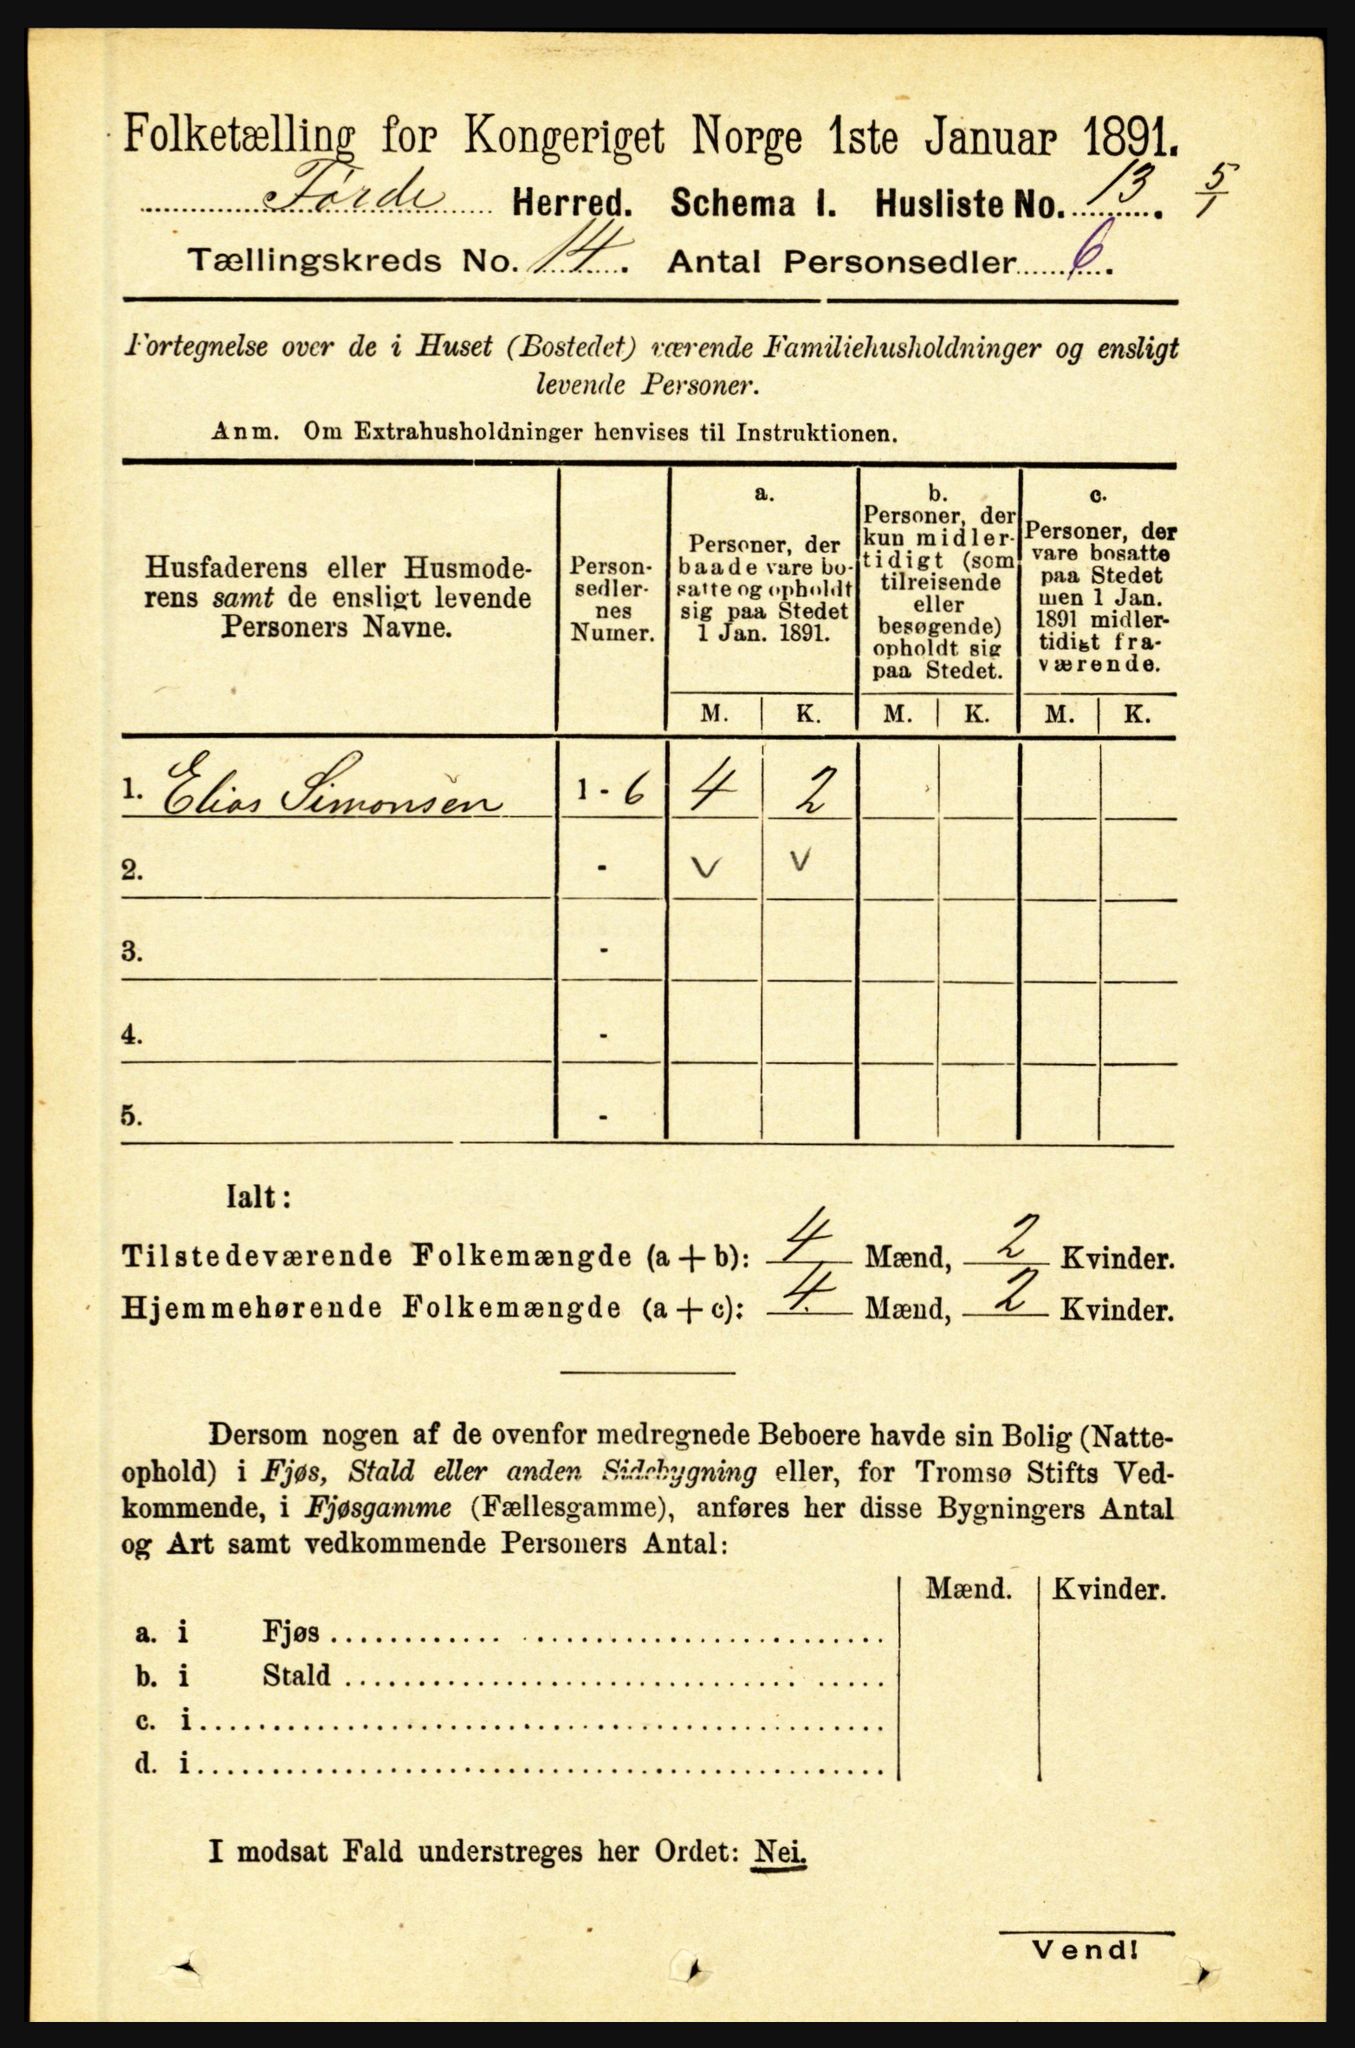 Folketælling for Kongeriget Norge 1ste Januar 1891.
Førde Herred. Schema I. Husliste No. 13. 5/1
Tællingskreds No. 14. Antal Personsedler 6.
Fortegnelse over de i Huset (Bostedet) værende Familiehusholdninger og ensligt
levende Personer.
Anm. Om Extrahusholdninger henvises til Instruktionen.
Husfaderens eller Husmode-
rens samt de ensligt levende
Personers Navne.
Person-
sedler-
nes
Numer.
a.
Personer, der
baade vare bo-
satte og opholdt
sig paa Stedet
1 Jan. 1891.
b.
Personer, der
kun midler-
tidigt (som
tilreisende
eller
besøgende)
opholdt sig
paa Stedet.
c.
Personer, der
vare bosatte
paa Stedet
men 1 Jan.
1891 midler-
tidigt fra-
værende.
M. K. M. K. M. K.
1. Elias Simonsen 1 - 6 4 2
2. - v v
3. -
4. -
5. -
Ialt:
Tilstedeværende Folkemængde (a + b): 4 Mænd, 2 Kvinder.
Hjemmehørende Folkemængde (a + c): 4 Mænd, 2 Kvinder.
Dersom nogen af de ovenfor medregnede Beboere havde sin Bolig (Natte-
ophold) i Fjøs, Stald eller anden Sidebygning eller, for Tromsø Stifts Ved-
kommende, i Fjøsgamme (Fællesgamme), anføres her disse Bygningers Antal
og Art samt vedkommende Personers Antal:
Mænd. Kvinder.
a. i Fjøs
b. i Stald
c. i
d. i
I modsat Fald understreges her Ordet: Nei.
Vend!